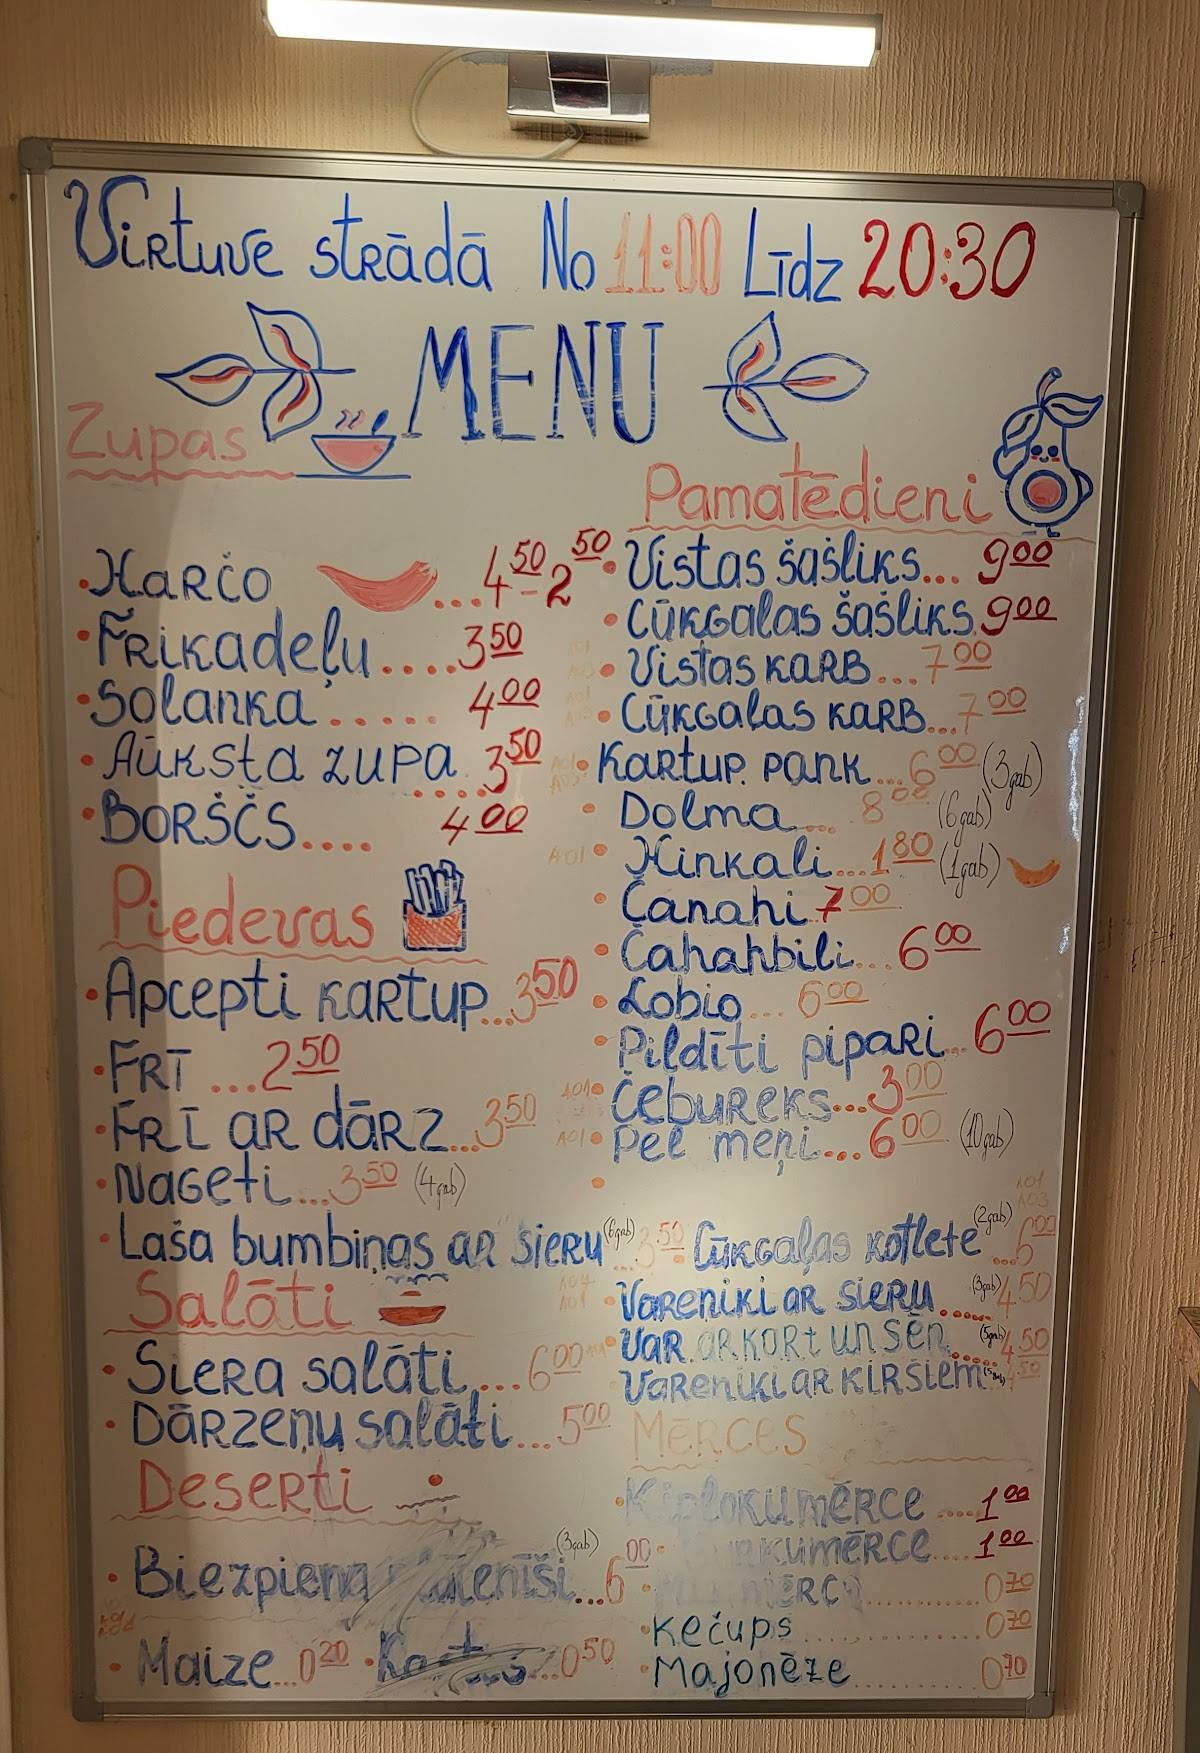 Virtuve strādā No 11:00 Līdz 20:30
MENU
Zupas
Harčo ....4.50 - 2.50
Frikadeļu....3.50
Solanka..... 4.00
Aūksta zupa.....3.50
Borščs.... 4.00
Piedevas
Apcepti kartup...3.50
Frī ...2.50
Frī ar dārz...3.50
Nageti...3.50 (4gab)
Laša bumbiņas ar sieru (6gab)...3.50
Salāti
Siera salāti....6.00
Dārzeņu salāti...5.00
Deserti
Biezpiena (3gab)...6.00
Maize...0.20
...0.50
Pamatēdieni
Vistas šašliks... 9.00
Cūkgaļas šašliks 9.00
Vistas karb...7.00
Cūkgaļas karb...7.00
Kartup. pank...6.00 (3gab)
Dolma.... 8.00 (6gab)
Hinkali...1.80 (1gab)
Čanahi.7.00
Čahahbili...6.00
Lobio... 6.00
Pildīti pipari...6.00
Čebureks...3.00
Pel meņi...6.00 (10gab)
Cūkgaļas kotlete (2gab)...6.00
Vareņiki ar sieru.....(3gab) 4.50
Var. ar kart un sēn.....(5gab) 4.50
Vareņiki ar ķiršiem
Mērces
Ķiplokumērce .....1.00
1.00
0.70
Kečups..............0.70
Majonēze...........0.70